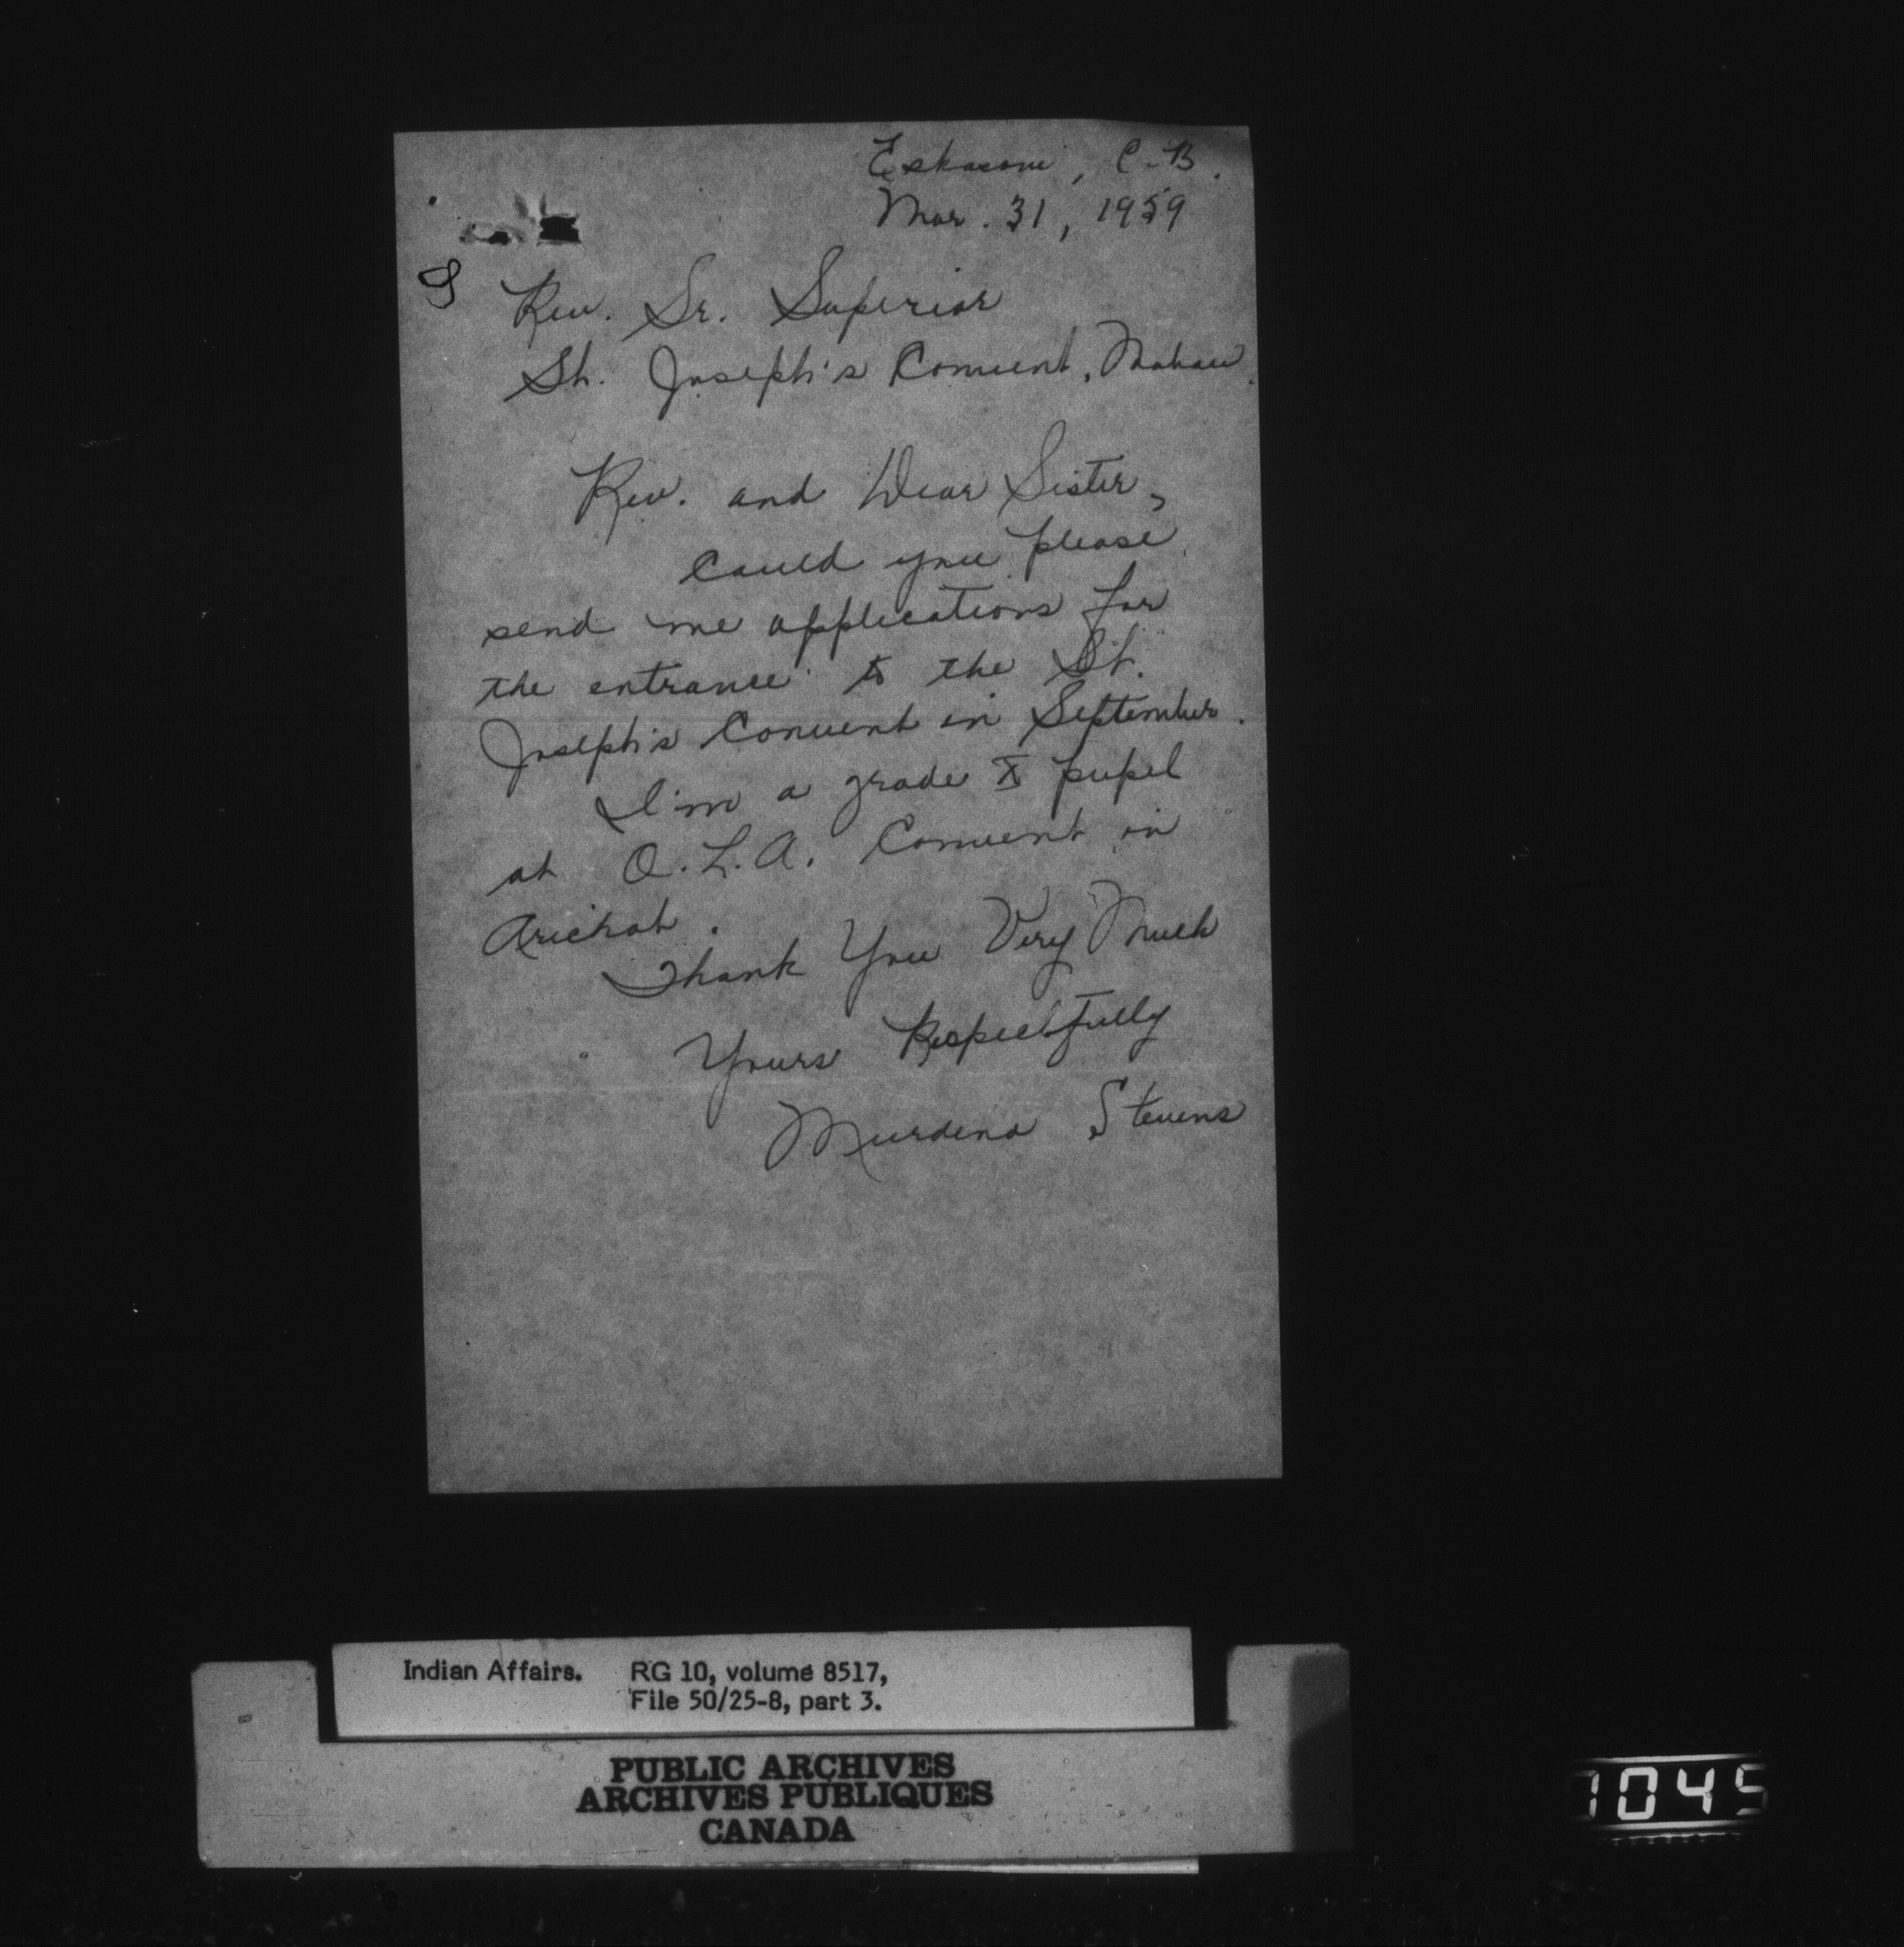 Eskasoni, C.B.
Mar. 31, 1959
Rev. Sr. Superior
St. Joseph's Convent, Mabou.
Rev. and Dear Sister,
Could you please
send me applications for
the entrance to the St.
Joseph's Convent in September.
I'm a grade X pupil
at O.L.A. Convent in
Arichat.
Thank You Very Much
Yours Respectfully
Murdena Stevens
Indian Affairs. RG 10, volume 8517,
File 50/25-8, part 3.
PUBLIC ARCHIVES
ARCHIVES PUBLIQUES
CANADA
1045